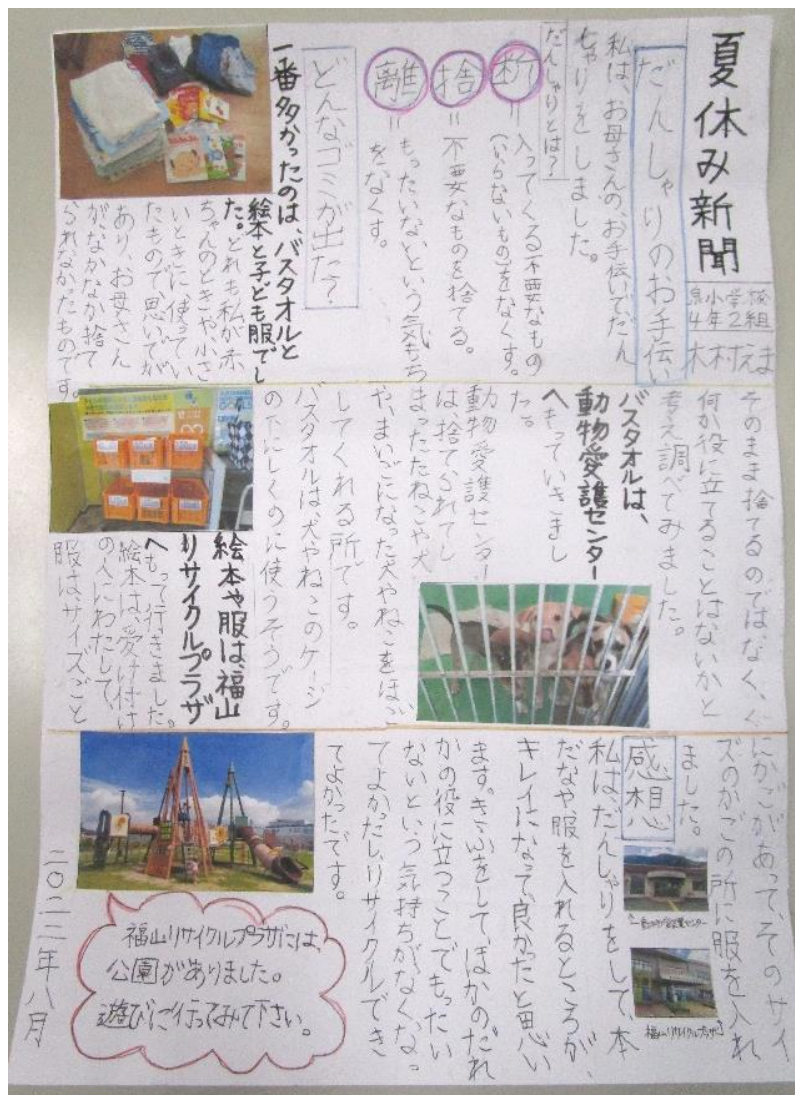 夏休み新聞
泉小学校
4年2組
木村えま
だんしゃりのお手伝い
私は、お母さんの、お手伝いでだん
しゃりをしました。
だんしゃりとは?
断=入ってくる不要なもの
(いらないもの)をなくす。
捨=不要なものを捨てる。
離=もったいないという気もち
をなくす。
どんなゴミが出た?
一番多かったのは、バスタオルと
絵本と子ども服でし
た。どれも私が赤
ちゃんのときや、小さ
いときに使ってい
たもので思いでが
あり、お母さん
が、なかなか捨て
られなかったものです。
そのまま捨てるのではなく、
何か役に立てることはないかと
考え調べてみました。
バスタオルは、
動物愛護センター
へもっていきまし
た。
動物愛護センター
は、捨てられてし
まったねこや犬
や、まいごになった犬やねこをほご
してくれる所です。
バスタオルは、犬やねこのケージ
の下にしくのに使うそうです。
絵本や服は、福山
リサイクルプラザ
へもって行きました。
絵本は、受け付け
の人にわたして、
服はサイズごと
にかごがあって、そのサイ
ズのかごの所に服を入れ
ました。
感想
私は、だんしゃりをして、本
だなや服を入れるところが、
キレイになって、良かったと思い
ます。きふをしてほかのだれ
かの役に立つことでもったい
ないという気持ちがなくなっ
てよかったし、リサイクルでき
てよかったです。
福山リサイクルプラザ
福山リサイクルプラザには、
公園がありました。
遊びに行ってみて下さい。
二〇二二年八月